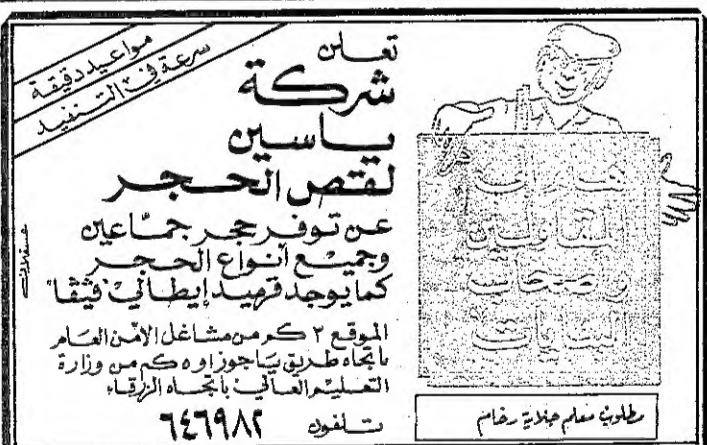 مواعيد دقيقة
سرعة في التنفيذ
تعلن
شركة
ياسين
لقص الحجر
عن توفر حجر جمّاعين
وجميع أنواع الحجر
كما يوجد قرميد إيطالي "فيتقا"
الموقع ٢ كم من مشاغل الأمن العام
باتجاه طريق ياجوز او ٥ كم من وزارة
التعليم العالي باتجاه الزرقاء
تلفون ٦٤٦٩٨٢
المقاولين
واصحاب
البنايات
مطلوب معلم جلاية رخام